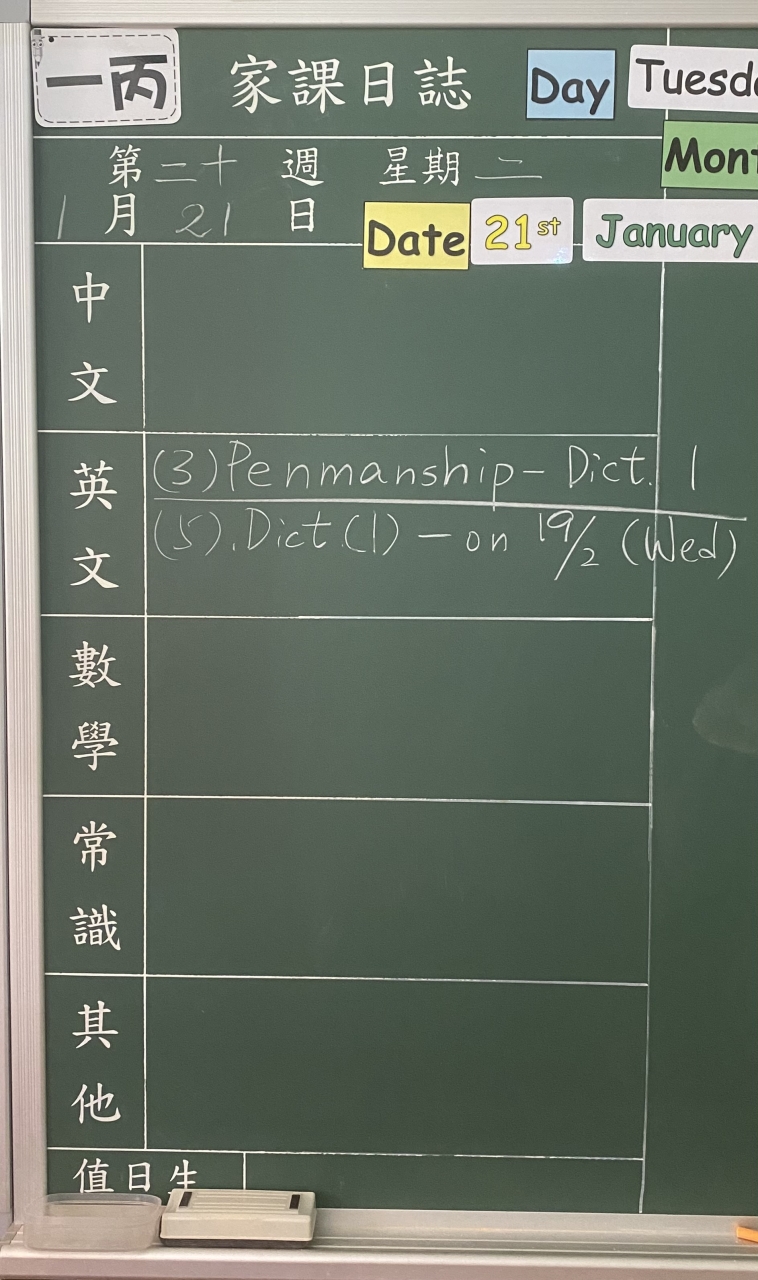 一丙 家課日誌 Day Tuesd
第二十週 星期二 Mon
1月21日 Date 21st January
中文
英文 (3) Penmanship – Dict. 1
(5). Dict.(1) – on 19/2 (Wed)
數學
常識
其他
值日生